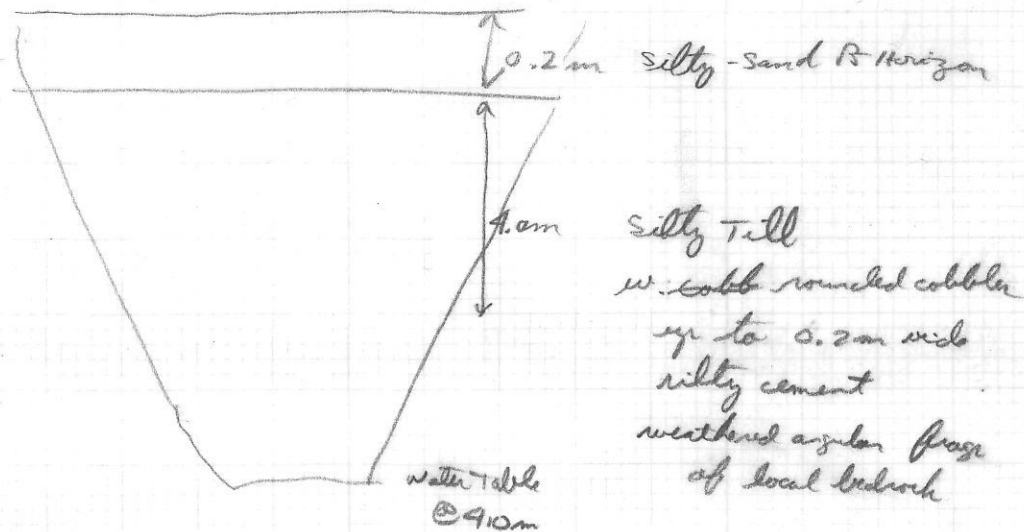 0.2m silty-sand B-Horizon
4.0m
silty Till
w. cobb rounded cobbles
up to 0.2m wide
silty cement
weathered angular frags
of local bedrock
Water Table
@ 4.0m